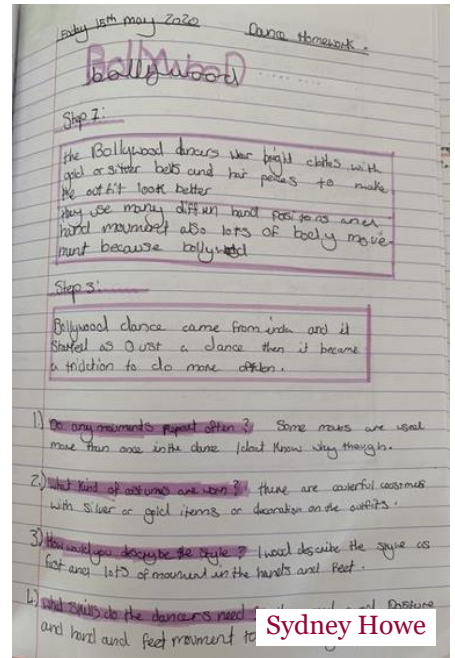 Friday 15th may 2020 Dance Homework.
Bollywood
bollywood
Step 1:
the Bollywood dancers wer bright clothes with
gold or silver belts and hair peices to make
the outfit look better
they use many diffren hand positons and
hand moument also lots of body move-
ment because bollywood
Step 3:
Bollywood dance came from india and it
started as Just a dance then it became
a tridction to do more often.
1.) Do any mouments repeat often? Some moves are used
more than once in the dance I dont know why though.
2.) What kind of costumes are worn? there are coulerful coostmes
with silver or gold items or decoration on the outfits.
3) How would you descrybe the style? I woul describe the style as
fast and lots of moument in the hands and feet.
4.) What skills do the dancers need Posture
and hand and feet moument to
Sydney Howe